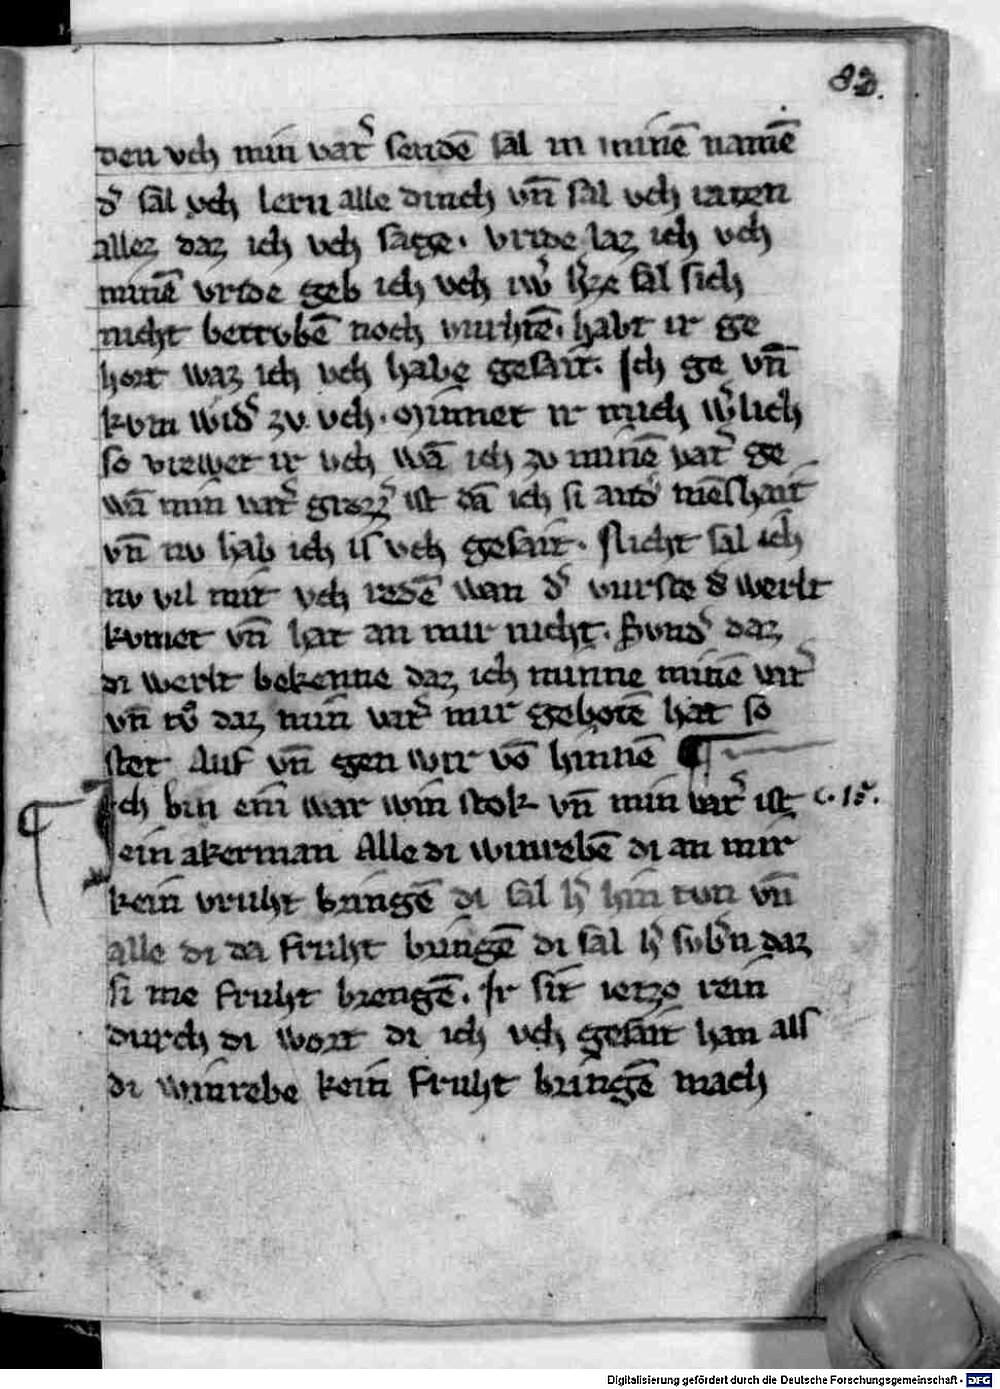 82.
den vch min vat̓ sendē sal in minē namē
d̓ sal vch lern alle dinch vn̄ sal vch raten
allez daz ich vch sage. vride laz ich vch
minē vride geb ich vch iw̓ h̓ze sal sich
nicht betrvbē noch vurhtē. habt ir ge
hort waz ich vch habe gesait. Ich ge vn̄
kvm wid̓ zv vch. Minnet ir mich w̓lich
so vrewet ir vch wā ich zv minē vat̓ ge
wā min vat̓ grozz̓ ist dā ich si and̓ mēshait
vn̄ nv hab ich is vch gesait. Nicht sal ich
nv vil mit vch redē wan d̓ vurste d̓ werlt
kvmet vn̄ hat an mir nicht. Svnd̓ daz
di werlt bekenne daz ich minne minē vat̓
vn̄ daz min vat̓ mir gebotē hat so
stet Auf vn̄ gen wir vō hinnē ¶
¶ Ich bin ein war win stok vn̄ min vat̓ ist c. 15.
ein akerman Alle di winrebē di an mir
kein vruht bringē di sal h̓ hin tun vn̄
alle di da fruht bringē di sal h̓ svb̓n daz
si me fruht brengē. Ir sit ietzo rein
durch di wort di ich vch gesait han als
di winrebe kein fruht bringē mach
Digitalisierung gefördert durch die Deutsche Forschungsgemeinschaft - DFG